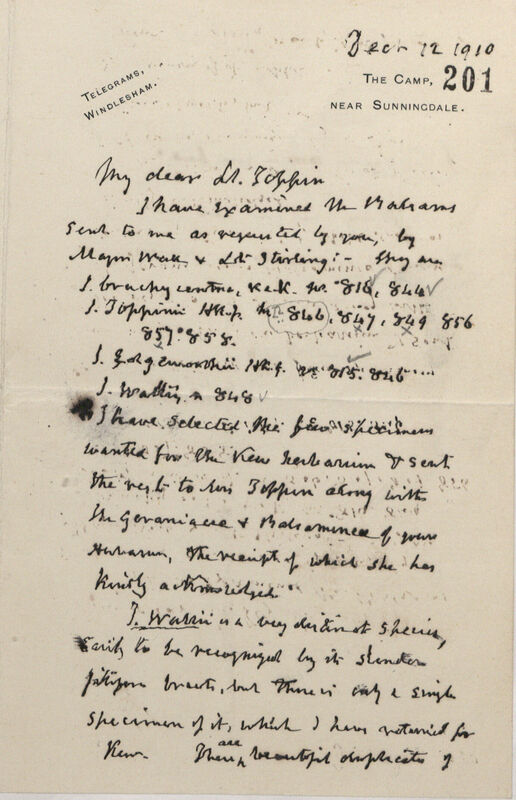 Decr 12 1910
TELEGRAMS,
WINDLESHAM.
THE CAMP, 201
NEAR SUNNINGDALE.
My dear Lt. Toppin
I have examined the Balsams
sent to me as requested by you, by
Major Wall & Lt. Stirling:- They are
I. brachycentra, K&K. no. 816, 844
I. Toppinii Hk.f. no. 846, 847, 849 856
857 858.
I. Edgeworthii Hk.f. no 815. 846
I. Wallii, n 848
I have selected the few specimens
wanted for the Kew herbarium & sent
the rest to Mrs Toppin along with
the Geraniaceae & Balsamineae of your
Herbarium, the receipt of which she has
kindly acknowledged.
I. Wallii is a very distinct species,
easily to be recognized by its slender
filiform bracts, but there is only a single
specimen of it, which I have retained for
Kew. There are beautiful duplicates of